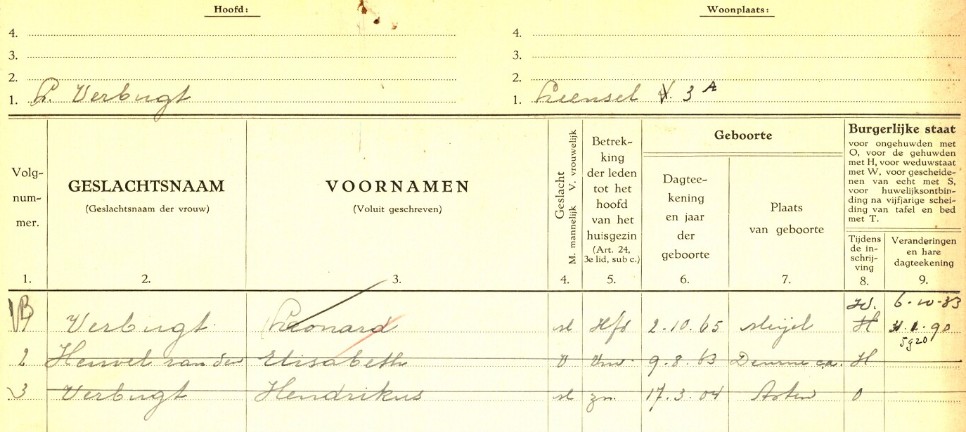 Hoofd:
Woonplaats:
4.
4.
3.
3.
2.
2.
1. L. Verbugt
1. Liensel V 3 A
Volg-
num-
mer.
GESLACHTSNAAM
(Geslachtsnaam der vrouw)
VOORNAMEN
(Voluit geschreven)
Geslacht
M. mannelijk V. vrouwelijk
Betrek-
king
der leden
tot het
hoofd
van het
huisgezin
(Art. 24,
3e lid, sub c.)
Geboorte
Dagtee-
kening
en jaar
der
geboorte
Plaats
van geboorte
Burgerlijke staat
voor ongehuwden met
O, voor de gehuwden
met H, voor weduwstaat
met W, voor gescheide-
nen van echt met S,
voor huwelijksontbin-
ding na vijfjarige schei-
ding van tafel en bed
met T.
Tijdens
de in-
schrij-
ving
Veranderingen
en hare
dagteekening
1. 2. 3. 4. 5. 6. 7. 8. 9.
W. 6-10-83
Verbugt Leonard M Hfd 2.10.65 Meijel H
5920
2 Heuvel van der Elisabeth V Vrw 9.8.63 Deurne c.a. H
3 Verbugt Hendrikus M zn 17.3.04 Asten O